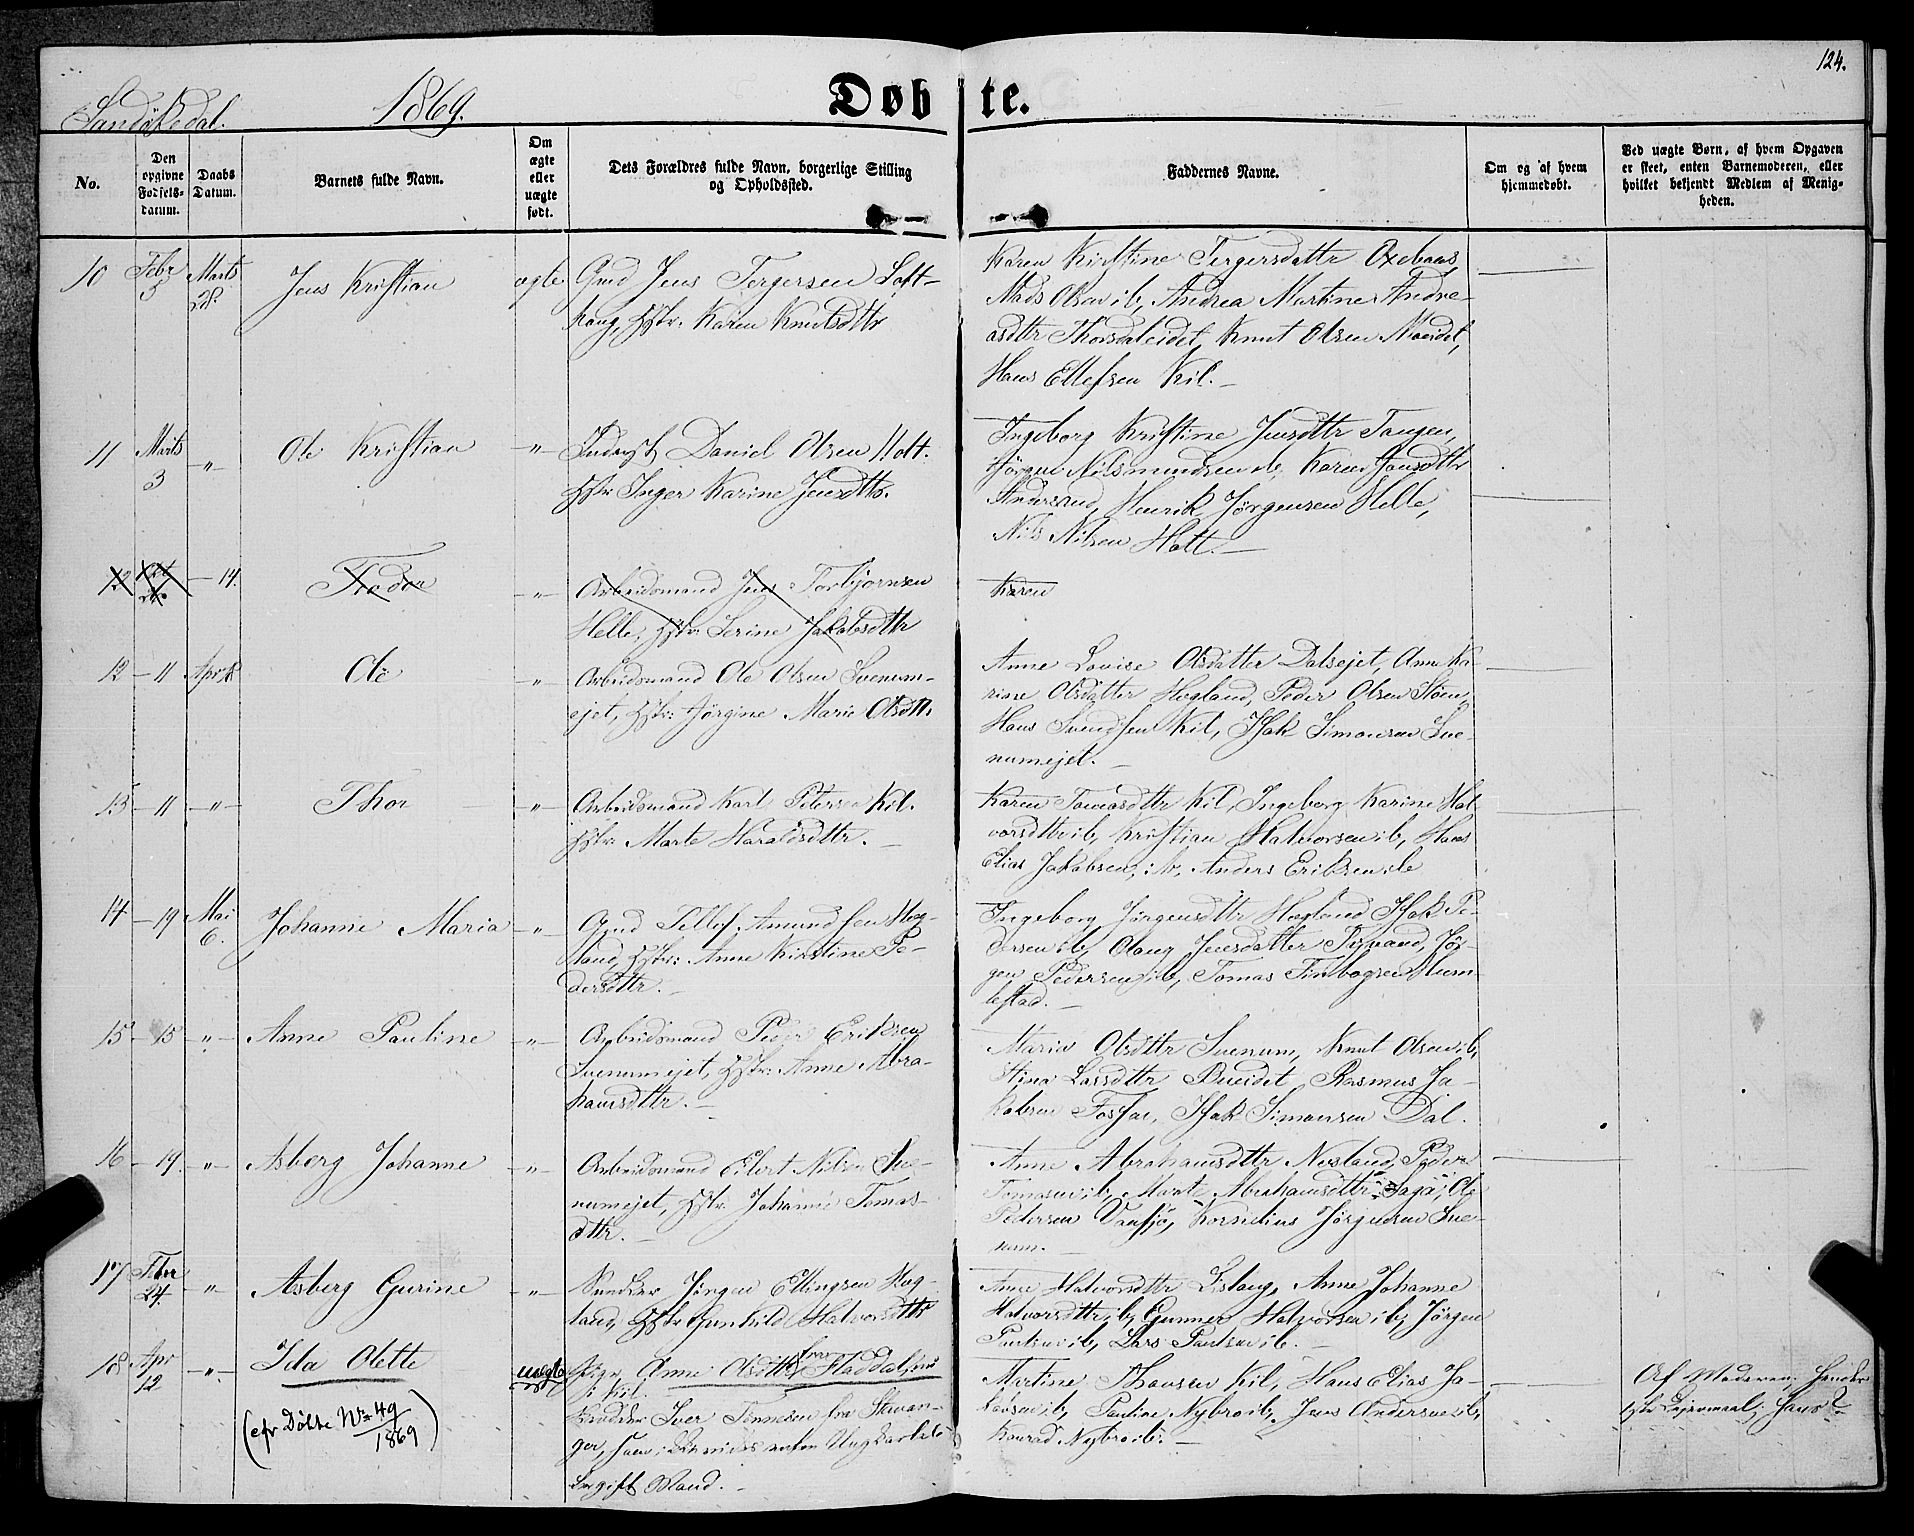 124.
Sandøkedal. 1869. Døbte.
No.
Den opgivne Fødsels-datum.
Daabs Datum.
Barnets fulde Navn.
Om ægte eller uægte født.
Dets Forældres fulde Navn, borgerlige Stilling og Opholdssted.
Faddernes Navne.
Om og af hvem hjemmedøbt.
Ved uægte Børn, af hvem Opgaven er skeet, enten Barnemoderen, eller hvilket bekjendt Medlem af Menigheden.
10 Febr 5 Marts 28. Jens Kristian ægte Gmd Jens Tergersen Loft-
haug, Hstr: Karen Knutsdttr
Karen Kirstine Tergersdattr
Mads Olsen ib, Andrea Martine Andre-
asdttr Thorsdaleidet, Knut Olsen
Hans Ellefsen Kil. —
11 Marts 3 „ Ole Kristian „ Daniel Olsen Holt.
Hstr Inger Karine Jensdttr.
Ingeborg Kristine Jensdttr Tangen,
Jørgen ib, Karen Jensdttr
Henrik Jørgensen Helle,
Nils Nilsen Holt. —
12 — 14. „ Arbeidsmand Jens Torbjørnsen
Helle, Hstr: Serine Jakobsdttr
Karen
12 — 11 Apr 18 Ole „ Arbeidsmand Ole Olsen Svenum-
ejet, Hstr: Jørgine Marie Olsdttr
Anne Lovise Olsdatter Dalsejet, Anne Ka-
rine Olsdatter Hogland, Peder Olsen
Hans Svendsen Kil, Isak Simonsen Sve-
numejet. —
13 — 11 „ Thor „ Arbeidsmand Karl Petersen Kil.
Hstr: Marte Haraldsdttr. —
Karen Tomasdttr Kil, Ingeborg Karine Hal-
vorsdttr ib, Kristian Halvorsen ib, Hans
Elias Jakobsen ib, Anders Eriksen ib
14 — 19 Mai 6. Johanne Maria „ Gmd Tellef Amundsen Hog-
land, Hstr: Anne Kirstine Pe-
dersdttr. —
Ingeborg Jørgensdttr Hogland, Isak Pe-
dersen ib, Olaug Jensdatter Jør-
gen Pedersen ib, Tomas Finbogsen Hum-
lestad. —
15 — 15 „ Anne Pauline „ Arbeidsmand Peder Eriksen
Svenumejet, Hstr: Anne Abra-
hamsdttr. —
Maria Olsdttr Svenum, Knut Olsen ib,
Stina Larsdttr Rasmus Ja-
kobsen Fossar, Isak Simonsen Dal.
16 — 19. „ Asberg Johanne „ Arbeidsmand Eilert Nilsen Sve-
numejet, Hstr. Johanne Tomas-
dttr. —
Anne Abrahamsdttr Nesland, Peder
Tomasen ib, Marte Abrahamsdttr Ole
Pedersen Kornelius Jørgensen Sve-
num. —
17 Febr 24. „ Asberg Gurine „ Jørgen Ellingsen Hog-
land, Hstr Gunhild Halvorsdttr
Anne Halvorsdttr Anne Johanne
Halvorsdttr ib, Gunner Halvorsen ib, Jørgen
Paulsen ib, Lars Paulsen ib. —
18 Apr 12 „ Ida Olette uægte Pige Anne Olsdttr fra Fladdal, nu
i Kil.
Iver Tønnesen fra Stavan-
ger, Ungkarl eller
Mand. —
(cfr Døbte No 49 / 1869)
Martine Thorsen Kil, Hans Elias Ja-
kobsen ib, Pauline Nybro ib, Jens Andersen ib,
Konrad Nybro ib. —
Af Moderen, hendes
Lejermaal;